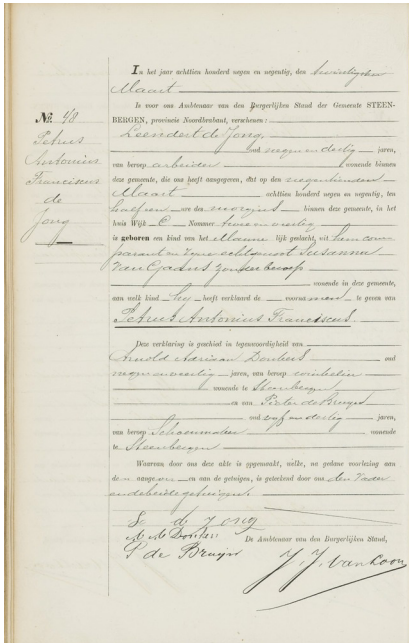 In het jaar achttien honderd negen en negentig, den twintigsten
Maart
Is voor ons Ambtenaar van den Burgerlijken Stand der Gemeente STEEN-
BERGEN, provincie Noordbrabant, verschenen:
No. 48
Petrus
Antonius
Franciscus
de
Jong
Leendert de Jong,
oud negen en dertig jaren,
van beroep arbeider wonende binnen
deze gemeente, die ons heeft aangegeven, dat op den negentienden
Maart achttien honderd negen en negentig, ten
half een ure des morgens binnen deze gemeente, in het
huis Wijk C Nummer twee en veertig
is geboren een kind van het Manne lijk geslacht, uit hem comparant en zijne echtgenoot Susanna
van Gaans zonder beroep
wonende in deze gemeente,
aan welk kind hij heeft verklaard de voornamen te geven van
Petrus Antonius Franciscus.
Deze verklaring is geschied in tegenwoordigheid van
Arnold Adriaan Donkers oud
negen en veertig jaren, van beroep
wonende te Steenbergen
en van Pieter de Bruijn
oud vijf en dertig jaren,
van beroep Schoenmaker wonende
te Steenbergen
Waarvan door ons deze akte is opgemaakt, welke, na gedane voorlezing aan
den aangever en aan de getuigen, is geteekend door ons den vader
en de beide getuigen.
L de Jong
Donkers
P de Bruijn
De Ambtenaar van den Burgerlijken Stand,
J. J. van Loon